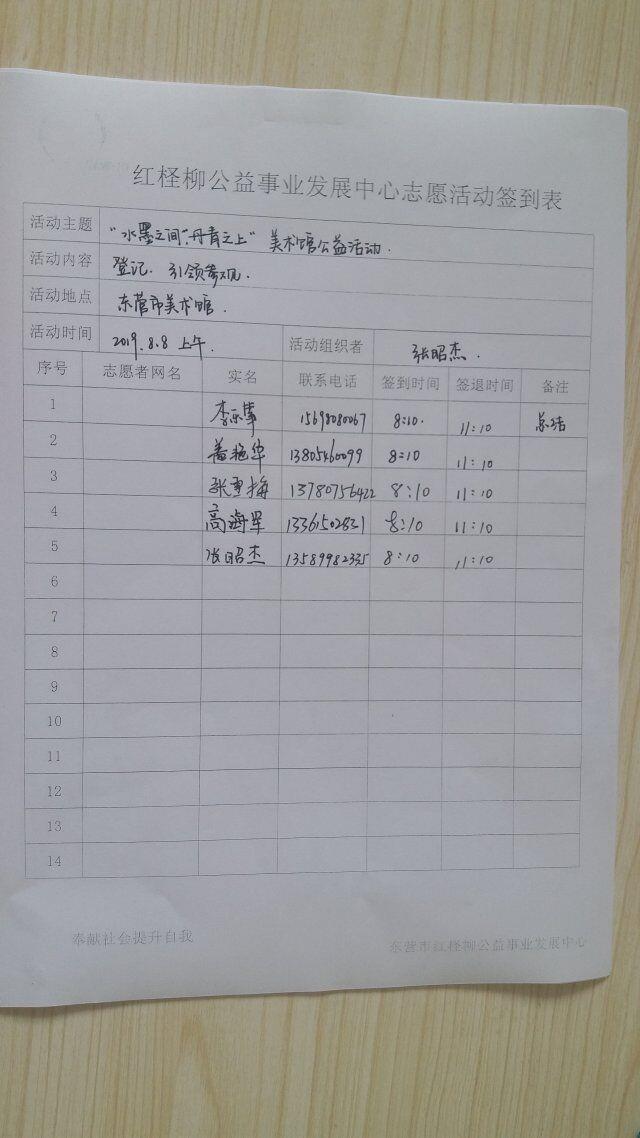 红柽柳公益事业发展中心志愿活动签到表
活动主题 "水墨之间,丹青之上" 美术馆公益活动.
活动内容 登记. 引领参观.
活动地点 东营市美术馆.
活动时间 2019.8.8 上午. 活动组织者 张昭杰.
序号 志愿者网名 实名 联系电话 签到时间 签退时间 备注
1 15698080067 8:10. 11:10 总结
2 艳华 13805460099 8:10 11:10
3 张雪梅 13780756422 8:10 11:10
4 高海军 13361502831 8:10 11:10
5 张昭杰 13589982335 8:10 11:10
6
7
8
9
10
11
12
13
14
奉献社会提升自我 东营市红柽柳公益事业发展中心